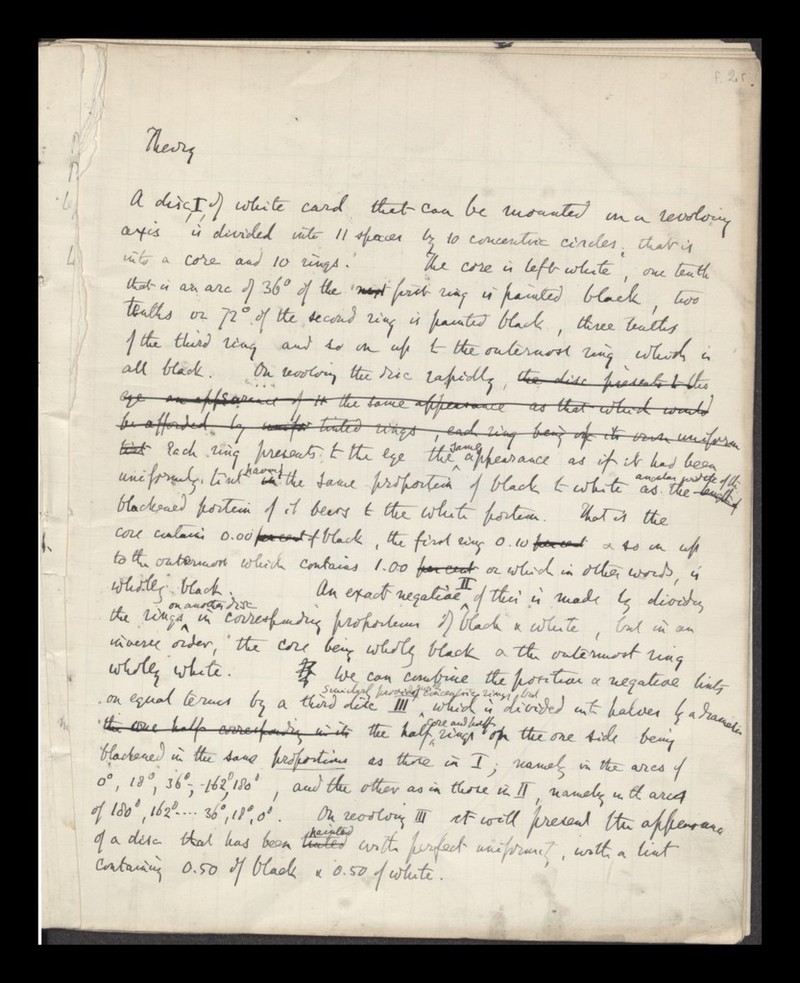 F. 25.
Theory
A disc, I, of white card that can be mounted on a revolving
axis is divided into 11 spaces by 10 concentric circles, that is
into a core and 10 rings. The core is left white, one tenth
that is an arc of 36° of the next first ring is painted black, two
tenths or 72° of the second ring is painted black, three tenths
of the third ring and so on up to the outermost ring which is
all black. On revolving the disc rapidly, the disc presents to the
eye an appearance of it the same appearance as that which would
be afforded by tinted rings, each ring being of its own uniform
tint Each ring presents to the eye the same appearance as if it had been
uniformly tinted having the same proportion of black to white as the angular of the length of
blackened portion of it bears to the white portion. That is the
core contains 0.00 per cent of black, the first ring 0.10 per cent & so on up
to the outermost which contains 1.00 per cent or which in other words, is
wholly black. An exact negative II of this is made by dividing
the rings on another disc in corresponding proportions of black & white, but in an
inverse order, the core being wholly black & the outermost ring
wholly white. We can combine the positive & negative tints
on equal terms by a third disc III similarly concentric rings, but which is divided into halves by a diameter
the one half corresponding in its the half core and half rings on the one side being
blackened in the same proportions as those in I; namely in the arcs of
0°, 18°, 36°, -162° 180°, and the other as in those in II, namely in the arcs
of 180°, 162° .... 36°, 18°, 0°. On revolving III it will present the appearance
of a disc that has been tinted painted with perfect uniformity, with a tint
containing 0.50 of black & 0.50 of white.